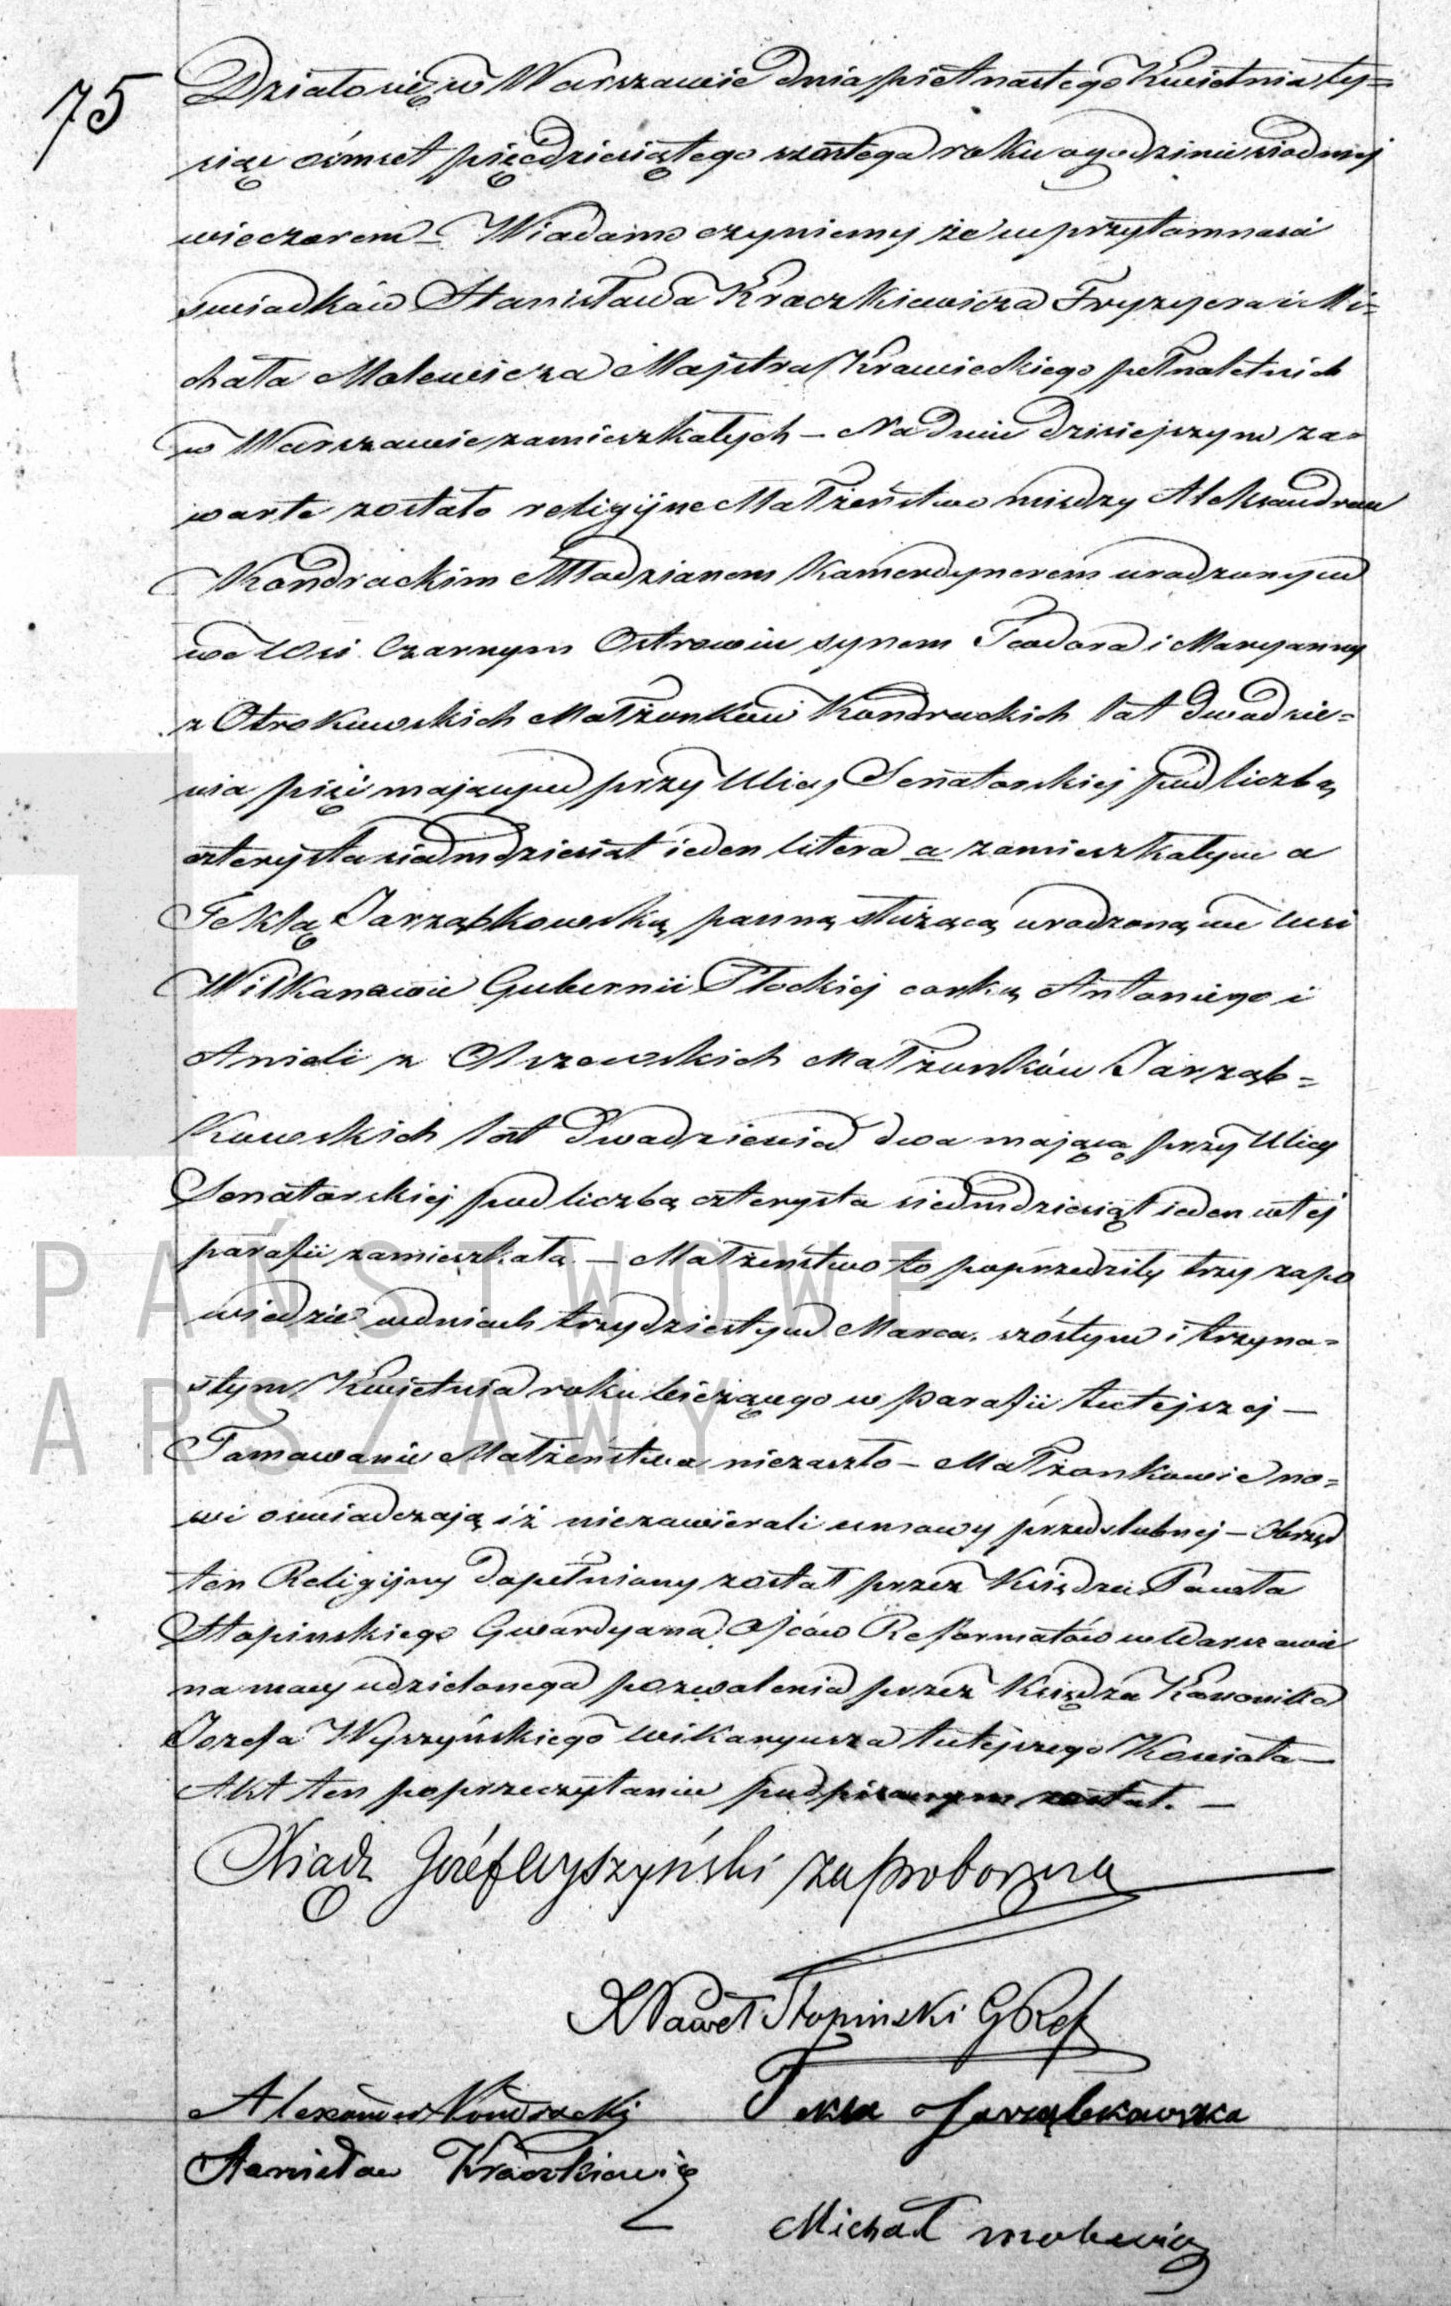 75
Działo się w Warszawie dnia piętnastego Kwietnia ty=
siąc ośmset pięcdziesiątego szóstego roku o godzinie siodmej
wieczorem – Wiadomo czyniemy że w przytomnosci
swiadków Stanisława Kraczkiewicza Fryzyera i Mi=
chała Malewicza Majstra Krawieckiego pełnoletnich
w Warszawie zamieszkałych – Na dniu dzisiejszym za=
warte zostało religijne Małżeństwo między Aleksandrem
Kondrackim Młodzianem Kamerdynerem urodzonym
we Wsi Czarnym Ostrowiu synem Teodora i Maryanny
z Otrokowskich Małżonków Kondrackich lat dwadzie=
scia pięć mającym przy Ulicy Senatorskiej pod liczbą
czterysta siedmdziesiąt ieden litera a zamieszkałym a
Teklą Jarząbkowską panną służącą urodzoną we wsi
Wilkanowie Gubernii Płockiej corką Antoniego i
Anieli z Olszewskich Małżonków Jarząb=
kowskich lat dwadziescia dwa mającą przy Ulicy
Senatorskiej pod liczbą czterysta siedmdziesiąt ieden w tej
parafii zamieszkałą. – Małżeństwo to poprzedziły trzy zapo
wiedzie w dniach trzydziestym Marca, szóstym i trzyna=
stym Kwietnia roku bieżącego w Parafii tutejszej –
Tamowanie Małżeństwa niezaszło – Małżonkowie no=
wi oswiadczają iż niezawierali umowy przedslubnej – Obrzęd
ten Religijny dopełniony został przez Księdza Pawła
Słopinskiego Gwardyana Ojców Reformatów w Warszawie
na mocy udzielonego pozwolenia przez Księdza Kanonika
Józefa Wyszyńskiego Wikaryusza tutejszego Kościoła –
Akt ten po przeczytaniu podpisanym został. –
Xiądz Józef Wyszyński za proboszcza
X Paweł Słopinski G Ref
Alexander Kondracki Tekla Jarząbkowska
Stanisław Kraczkiewicz
Michał Malewicz
PAŃSTWOWE
ARSZAWY